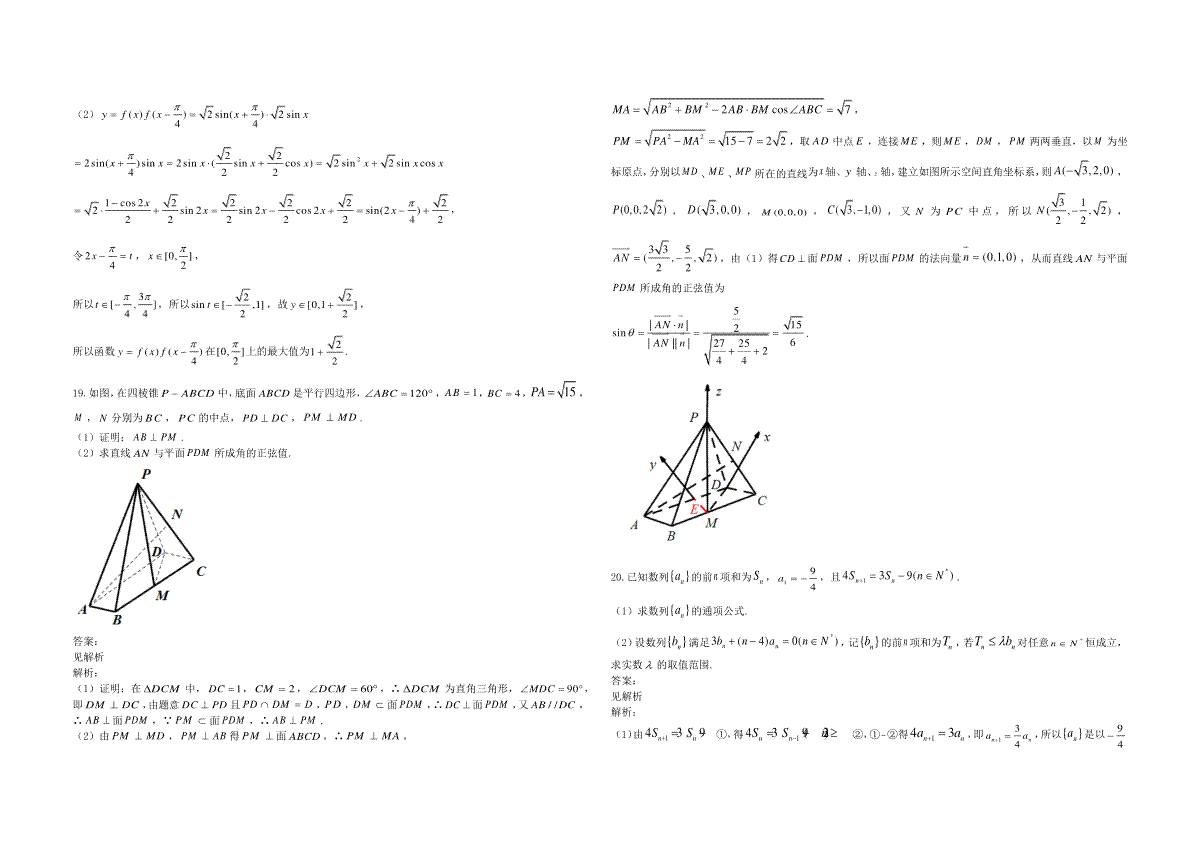 （2）y = f(x)f(x − π/4) = √2 sin(x + π/4)·√2 sin x
= 2sin(x + π/4)sin x = 2sin x·(√2/2 sin x + √2/2 cos x) = √2 sin² x + √2 sin x cos x
= √2·(1 − cos 2x)/2 + √2/2 sin 2x = √2/2 sin 2x − √2/2 cos 2x + √2/2 = sin(2x − π/4) + √2/2，
令 2x − π/4 = t，x∈[0, π/2]，
所以 t∈[−π/4, 3π/4]，所以 sin t∈[−√2/2,1]，故 y∈[0,1+√2/2]，
所以函数 y = f(x)f(x − π/4) 在[0, π/2]上的最大值为1+√2/2.
19.如图,在四棱锥 P − ABCD 中,底面 ABCD 是平行四边形,∠ABC = 120°,AB = 1,BC = 4,PA = √15,
M，N 分别为 BC，PC 的中点,PD ⊥ DC，PM ⊥ MD.
（1）证明：AB ⊥ PM.
（2）求直线 AN 与平面 PDM 所成角的正弦值.
P
N
D
C
M
A
B
答案：
见解析
解析：
（1）证明：在 ΔDCM 中，DC = 1，CM = 2，∠DCM = 60°，∴ΔDCM 为直角三角形，∠MDC = 90°，
即 DM ⊥ DC，由题意 DC ⊥ PD 且 PD ∩ DM = D，PD，DM ⊂ 面 PDM，∴DC ⊥ 面 PDM，又 AB//DC，
∴AB ⊥ 面 PDM，∵PM ⊂ 面 PDM，∴AB ⊥ PM.
（2）由 PM ⊥ MD，PM ⊥ AB 得 PM ⊥ 面 ABCD，∴PM ⊥ MA，
MA = √(AB² + BM² − 2AB·BM cos∠ABC) = √7，
PM = √(PA² − MA²) = √(15 − 7) = 2√2，取 AD 中点 E，连接 ME，则 ME，DM，PM 两两垂直，以 M 为坐
标原点,分别以 MD、ME、MP 所在的直线为 x 轴、y 轴、z 轴,建立如图所示空间直角坐标系,则 A(−√3,2,0)，
P(0,0,2√2)，D(√3,0,0)，M(0,0,0)，C(√3,−1,0)，又 N 为 PC 中点，所以 N(√3/2,−1/2,√2)，
AN = (3√3/2,−5/2,√2)，由（1）得 CD ⊥ 面 PDM，所以面 PDM 的法向量 n = (0,1,0)，从而直线 AN 与平面
PDM 所成角的正弦值为
sin θ = |AN·n|/|AN||n| = (5/2)/√(27/4 + 25/4 + 2) = √15/6.
z
P
N
x
y
D
C
E
A
M
B
20.已知数列{aₙ}的前n项和为Sₙ，a₁ = −9/4，且4Sₙ₊₁ = 3Sₙ − 9(n∈N*).
（1）求数列{aₙ}的通项公式.
（2）设数列{bₙ}满足3bₙ + (n − 4)aₙ = 0(n∈N*)，记{bₙ}的前n项和为Tₙ，若Tₙ ≤ λbₙ对任意n∈N*恒成立，
求实数λ的取值范围.
答案：
见解析
解析：
（1）由4Sₙ₊₁ = 3Sₙ 9 ①，得4Sₙ = 3Sₙ₋₁ ②，①−②得4aₙ₊₁ = 3aₙ，即aₙ₊₁ = 3/4 aₙ，所以{aₙ}是以−9/4